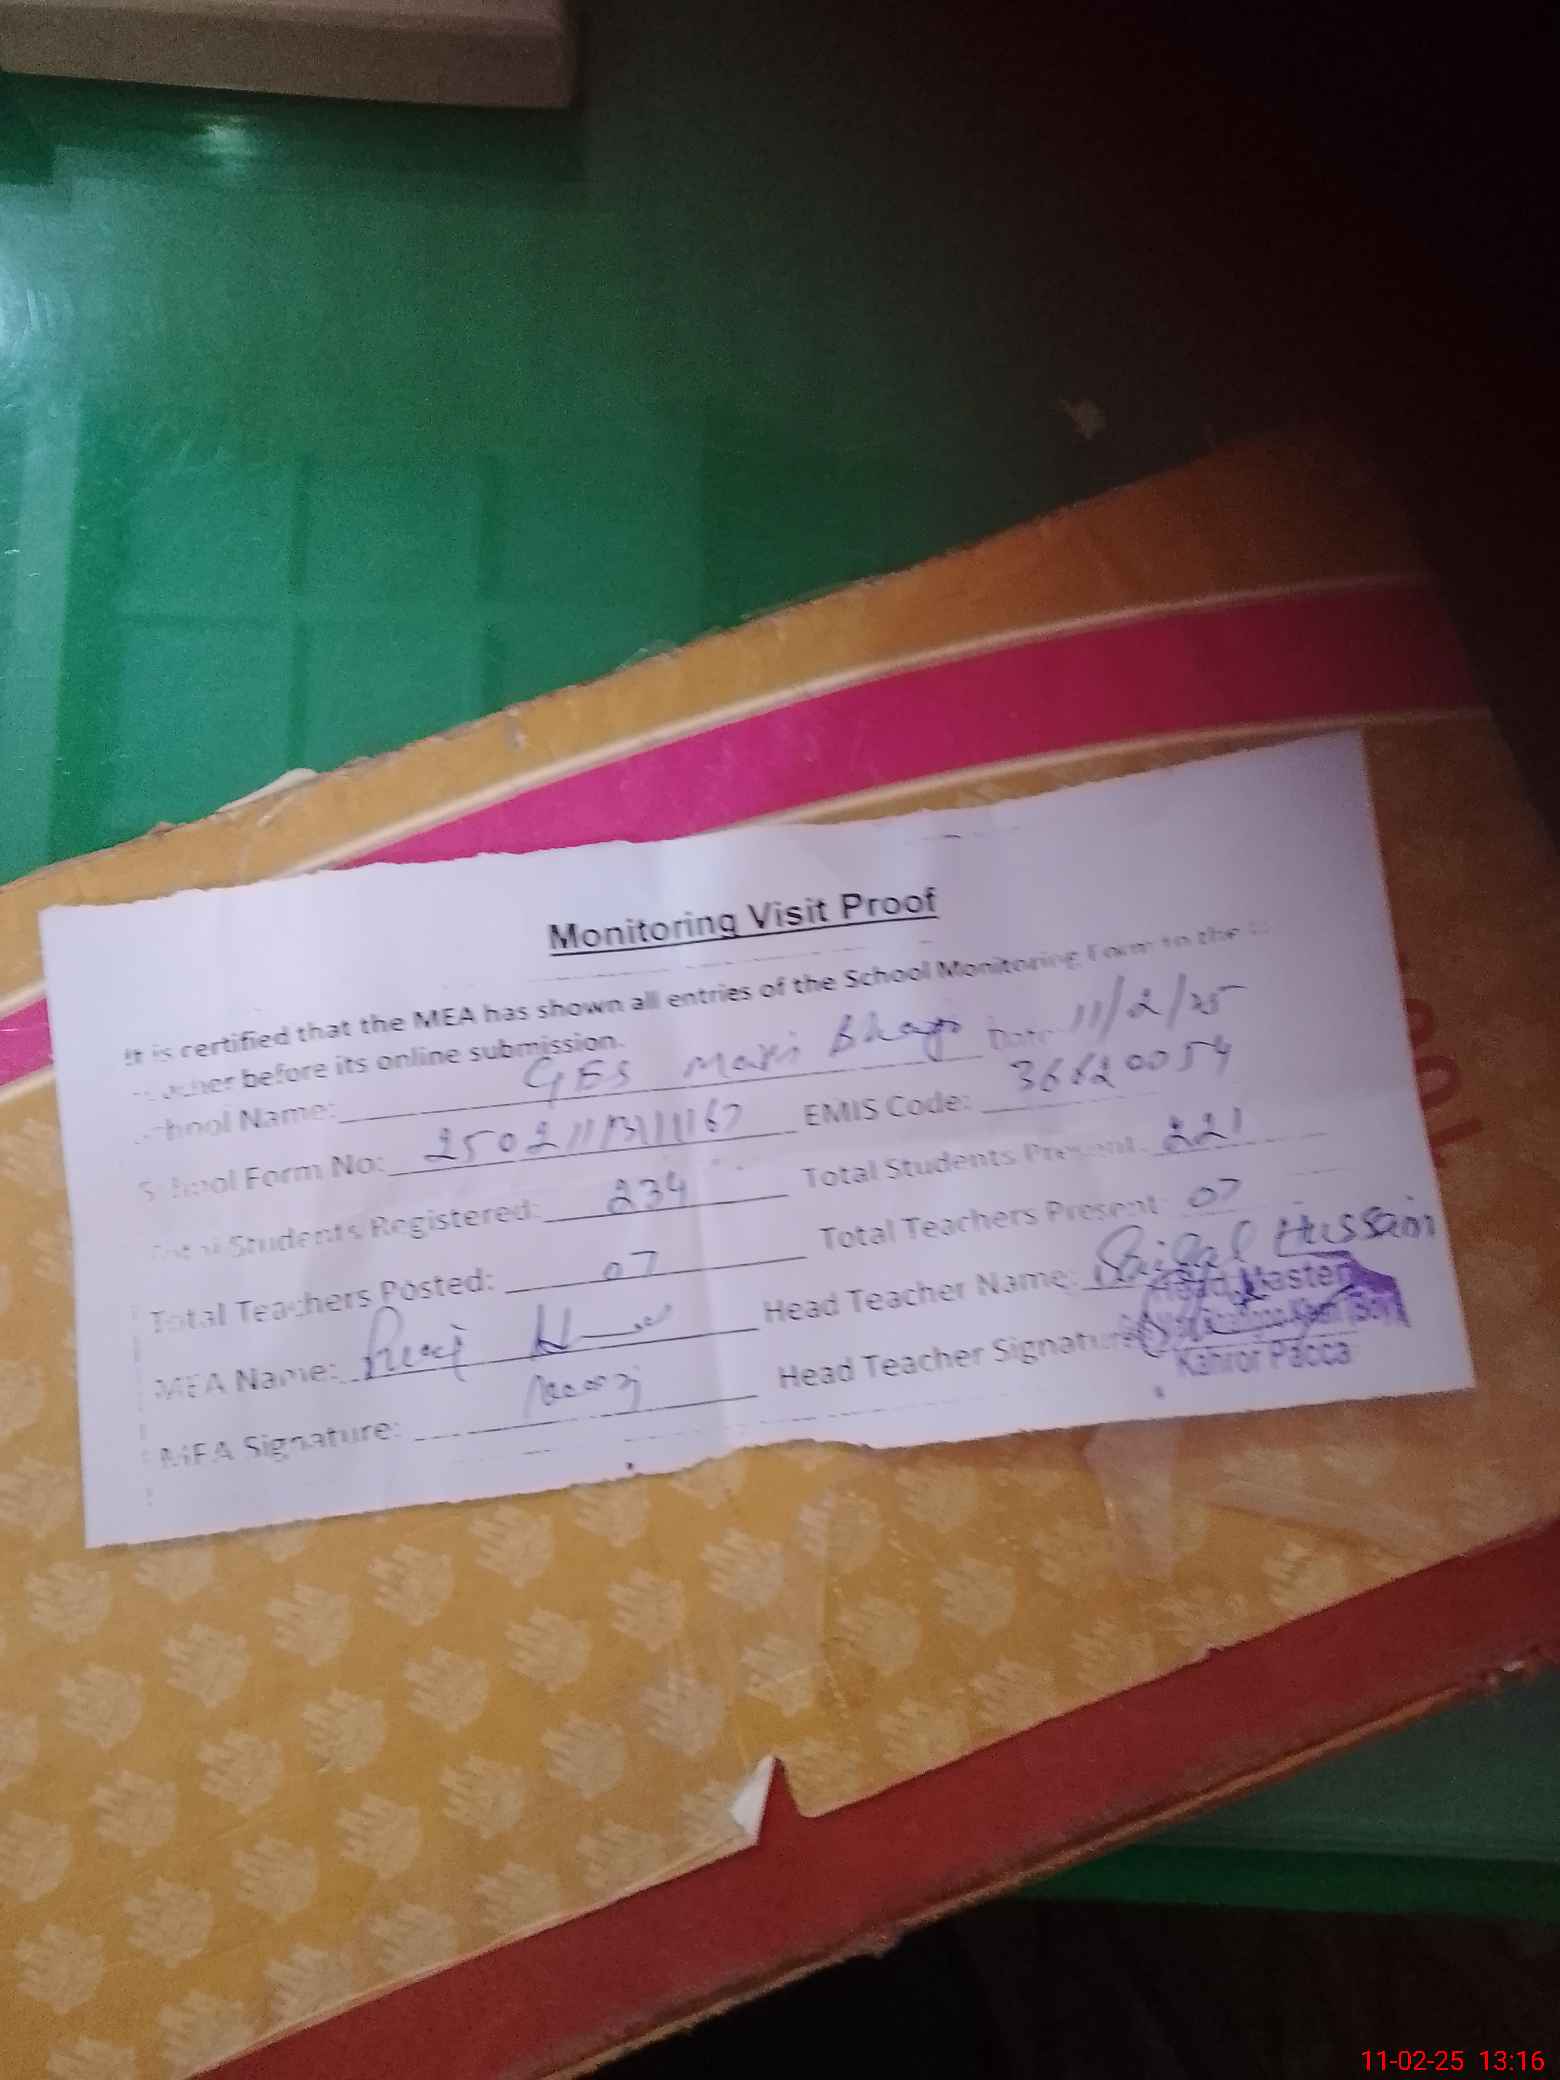 Monitoring Visit Proof
It is certified that the MEA has shown all entries of the School Monitoring Form to the
before its online submission.
School Name: GES Mari Bhago Date 11/2/25
School Form No: EMIS Code: 36620054
Total Students Registered: 234 Total Students Present: 221
Total Teachers Posted: 07 Total Teachers Present: 07
MEA Name: Head Teacher Name: Hussain
MEA Signature: Head Teacher Signature
Head Master
Kahror Pacca
11-02-25 13:16